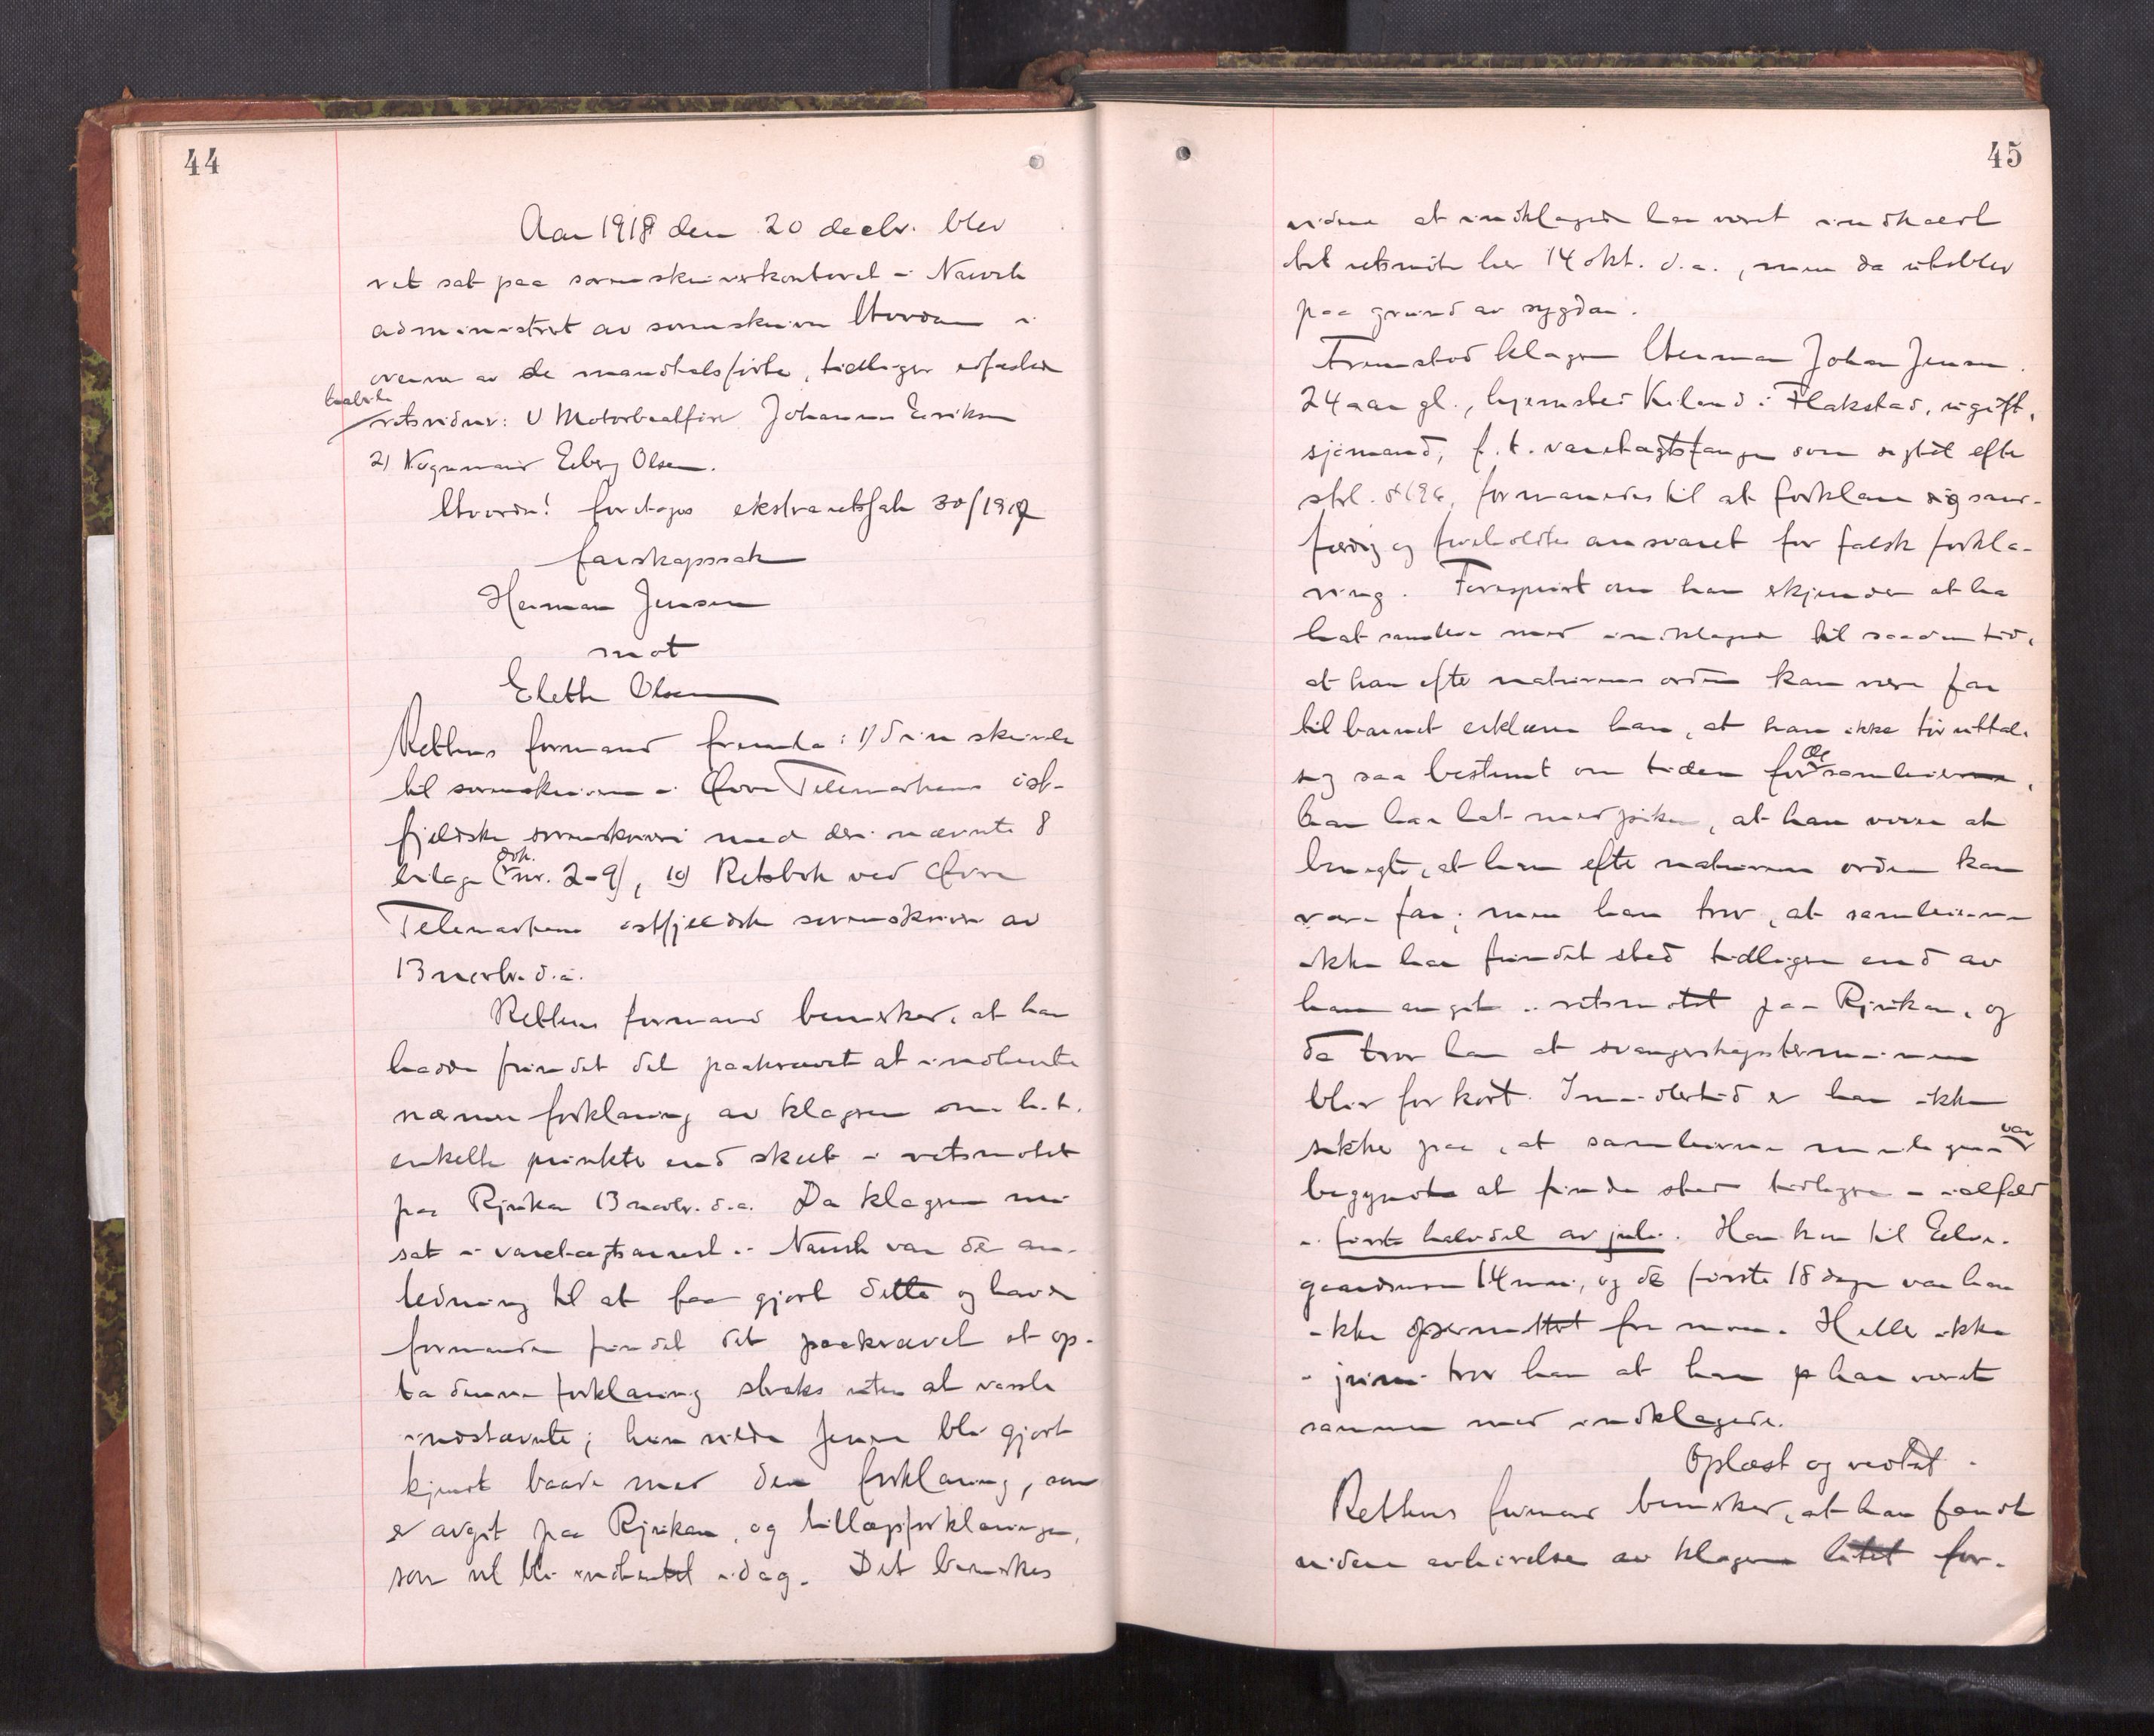 44
Aar 1918 den 20 decbr. blev
ret sat paa sorenskriverkontoret i Narvik
administrert av sorenskriver i
overvær av de mandtalsførte, tidligere edfæstede
retsvidner: 1) Motorbaatfører Johannes Eriksen
2) Vognmand Edberg Olsen.
Hvorda! foretages ekstraretssak 30/1918
farskapssak
Herman Jensen
mot
Elette Olsen
Rettens formand fremla: 1) skrivelse
til sorenskriveren i Øvre Telemarkens øst-
fjeldske sorenskriveri med deri nævnte 8
bilage (dok. nr. 2-9), 10) Retsbok ved Øvre
Telemarkens østfjeldske sorenskriveri av
13 novbr. d.a.
Rettens formand bemerket, at han
hadde fundet det paakrævet at indhente
nærmere forklaring av klageren om h.t.
enkelte punkter end skeet i retsmøtet
paa Rjukan 13 novbr. d.a. Da klageren nu
sat i varetægtsarrest i Narvik var det an-
ledning til at faa gjort dette og havde
formanden fundet det paakrævet at op-
ta denne forklaring straks uten at varsle
indstævnte; hun vilde jo bli gjort
kjendt baade med den forklaring, som
er avgit paa Rjukan, og tillægsforklaringen,
som vil bli indhentet idag. Det bemerkes
45
videre at indklagede har været indkaldt
til retsmøte her 14 okt. d.a., men da uteblev
paa grund av sygdom.
Fremstod klageren Herman Johan Jensen
24 aar gl., hjemsted Kiland i Flakstad, ugift,
sjømand, f.t. varetægtsfange som sigtet efter
strl. § 196, formanedes til at forklare sig sand-
færdig og foreholdtes ansvaret for falsk forkla-
ring. Forespurt om han erkjender at ha
hat samleie med indklagede til saadan tid,
at han efter naturens orden kan være far
til barnet erklærer han, at han ikke tør uttale
sig saa bestemt om tiden for de samleier,
han har hat med piken, at han vover at
benegte, at han efter naturens orden kan
være far; men han tror, at samleierne
ikke har fundet sted tidligere end av
ham angit i retsmøtet paa Rjukan, og
da tror han at svangerskapsterminen
blir for kort. Imidlertid er han ikke
sikker paa, at samleierne muligens var
begyndt at finde sted tidligere – ialfald
i første halvdel av juli. Han kom til
14 mai, og de første 18 dage var han
ikke for noen. Heller ikke
i juni tror han at han har været
sammen med indklagede.
Oplæst og vedtat.
Rettens formand bemerket, at han fandt
videre avhørelse av klageren litet for-